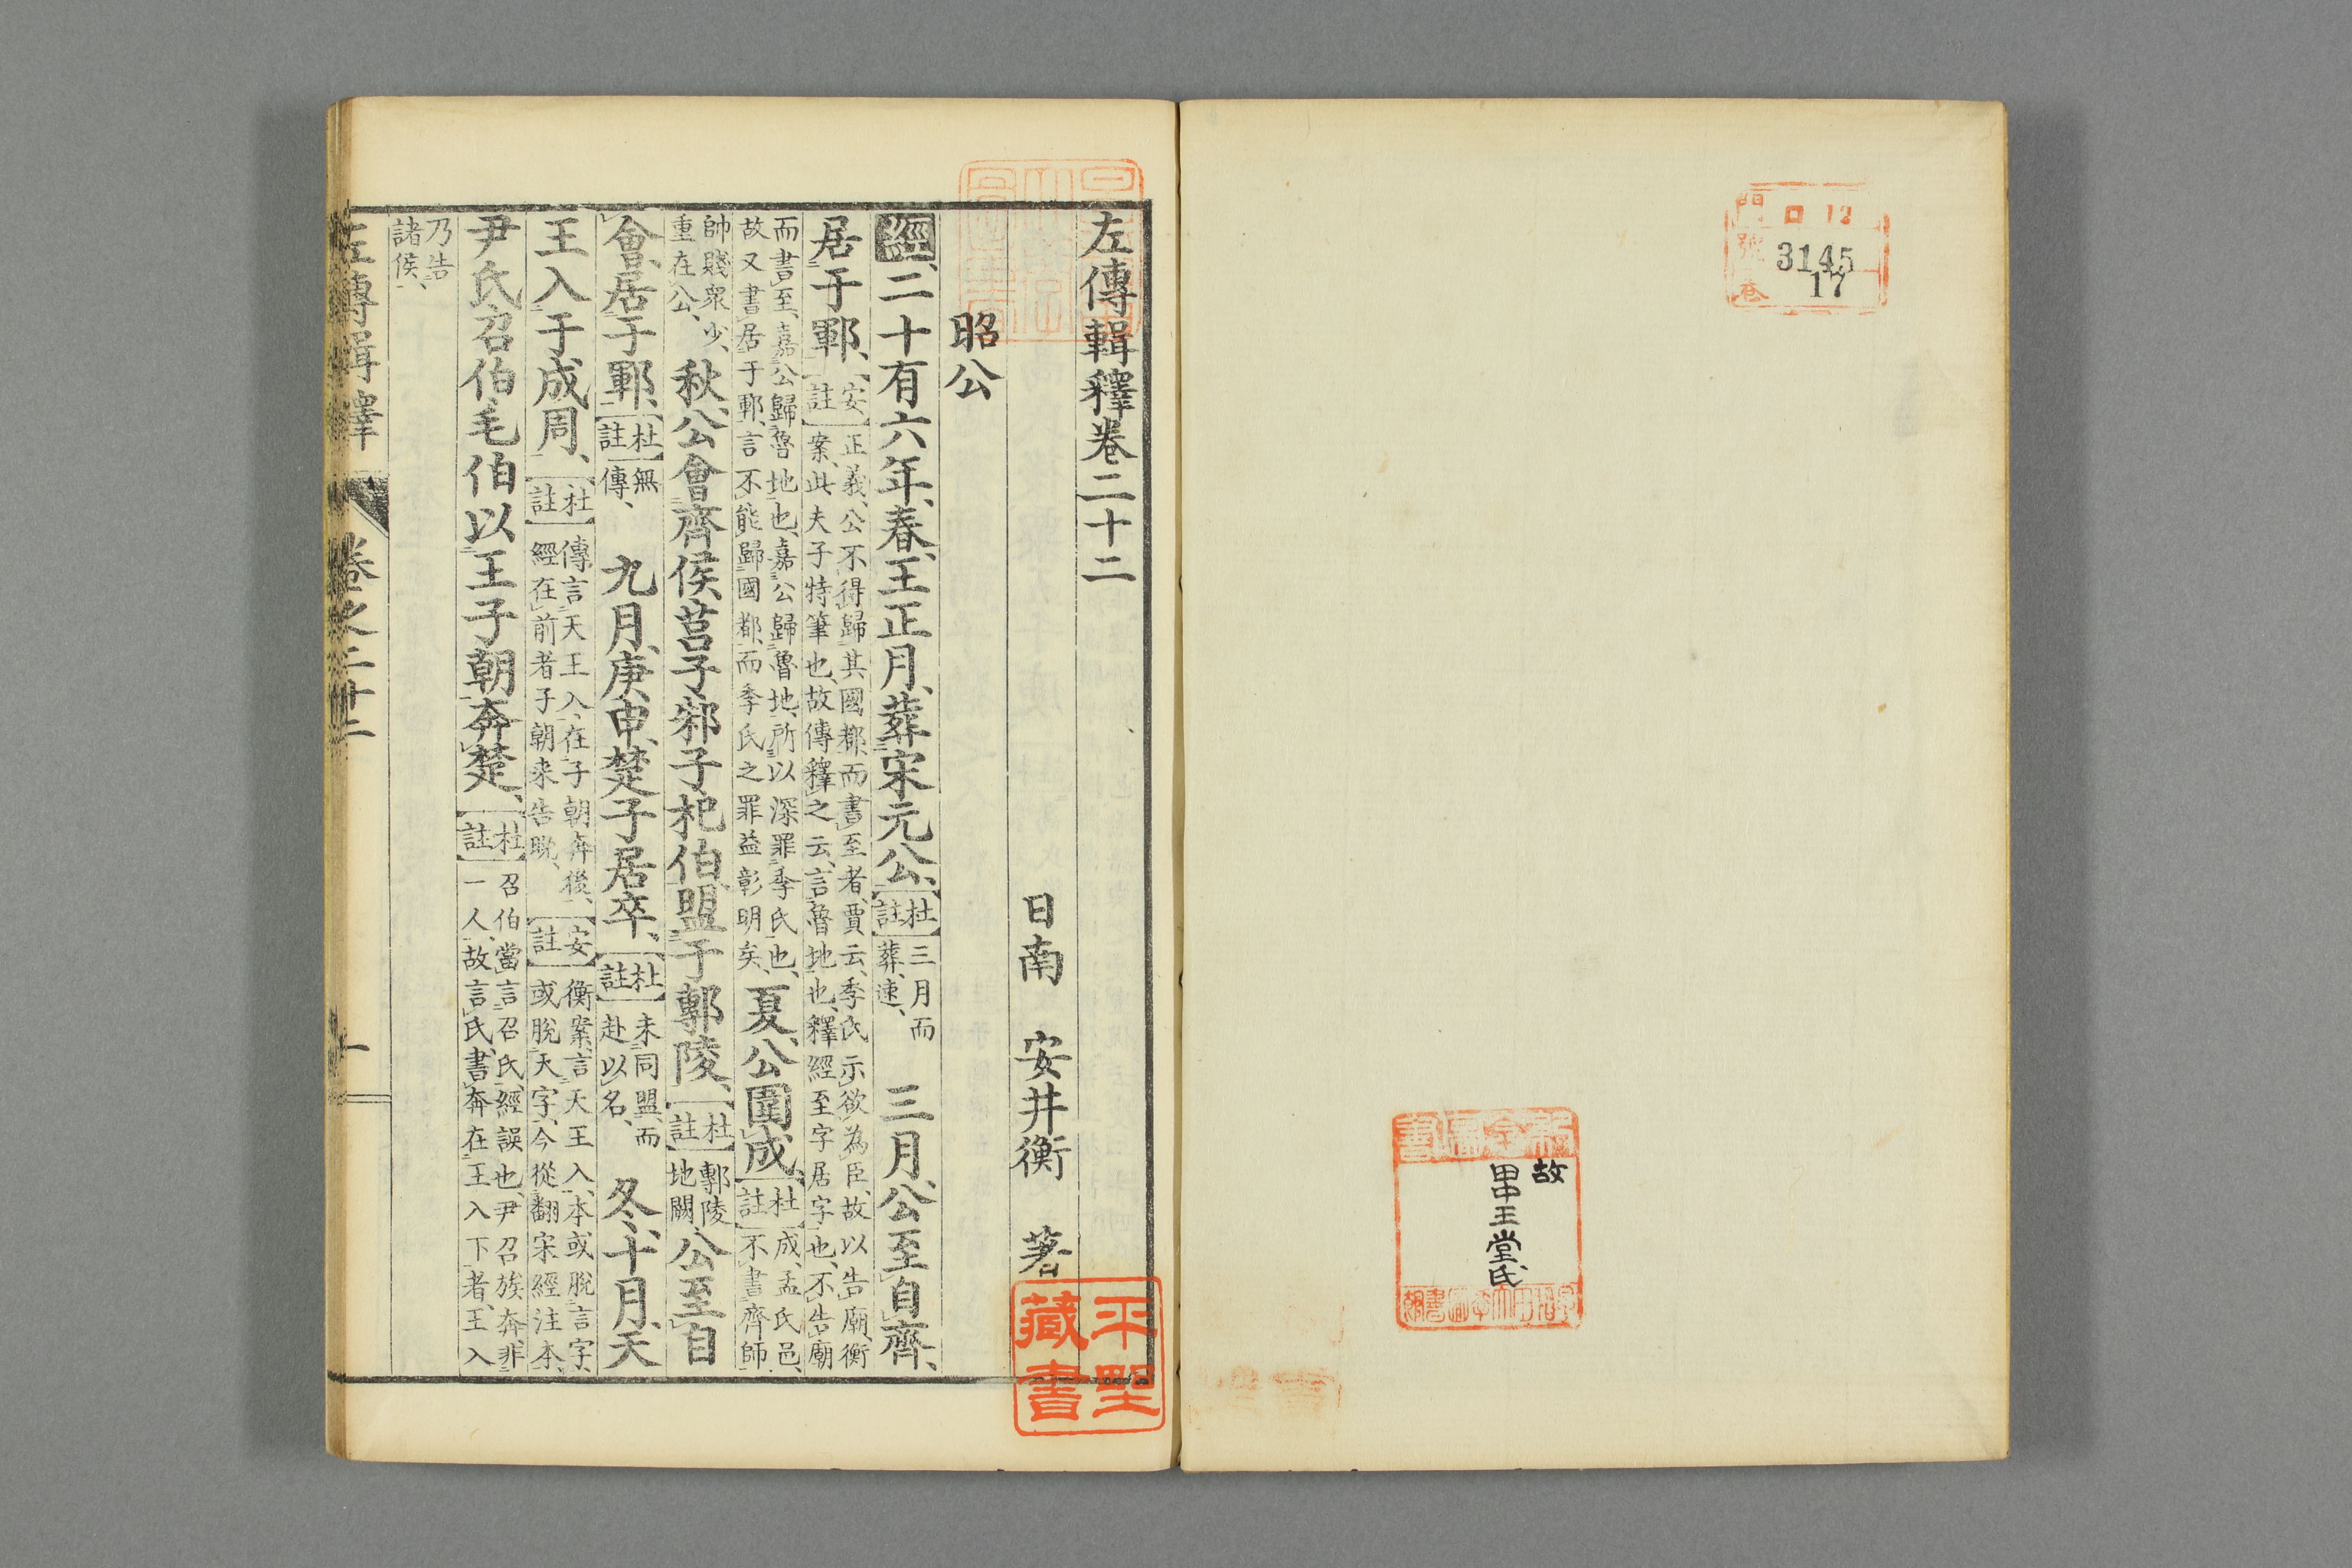 門 ロ 12
號 3145
卷 17
故
田中王堂氏
左傳輯釋卷二十二
日南 安井衡 著
昭公
經、二十有六年、春、王正月、葬宋元公、杜註三月而葬、速、 三月、公至自齊、
居于鄆、安註正義、公不得歸其國都、而書至者、賈云、季氏示欲為臣、故以告廟、衡案、此夫子特筆也、故傳釋之云、言魯地也、釋經至字居字也、不告廟
而書至、嘉公歸魯地也、嘉公歸魯地、所以深罪季氏也、故又書居于鄆、言不能歸國都、而季氏之罪益彰明矣、夏、公圍成、杜註成、孟氏邑、不書齊師
帥賤眾少、重在公、秋、公會齊侯莒子邾子杞伯盟于鄟陵、杜註鄟陵地闕、公至自
會、居于鄆、杜註無傳、 九月、庚申、楚子居卒、杜註未同盟而赴以名、 冬、十月、天
王入于成周、杜註傳言天王入、在子朝奔後、經在前者子朝来告晚、安註衡案、言天王入、本或脫言字、或脫天字、今從翻宋經注本、
尹氏召伯毛伯以王子朝奔楚、杜註召伯當言召氏、經誤也、尹召族奔、非一人、故言氏、書奔在王入下者、王入
乃告諸侯、
左傳輯釋 卷之二十二 一
平埜藏書